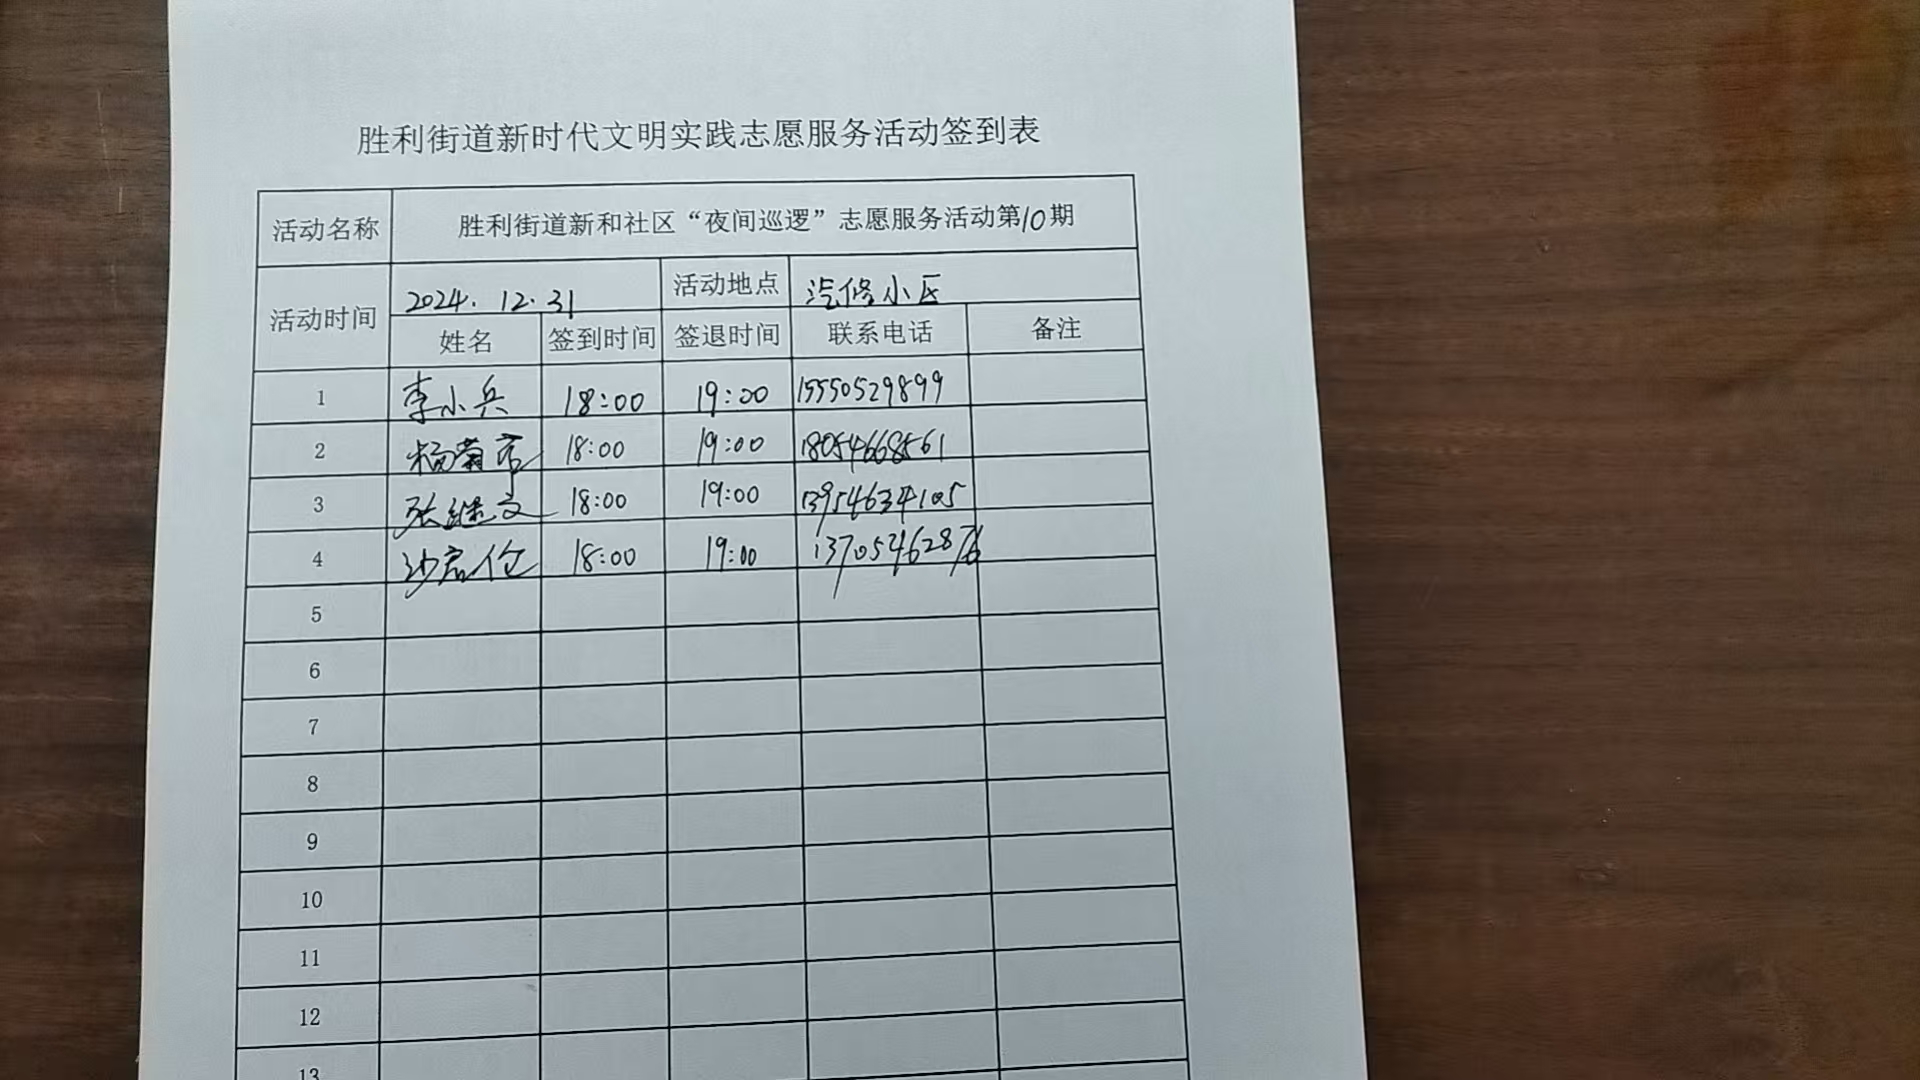 胜利街道新时代文明实践志愿服务活动签到表
活动名称 胜利街道新和社区“夜间巡逻”志愿服务活动第10期
活动时间 2024.12.31 活动地点 汽修小区
姓名 签到时间 签退时间 联系电话 备注
1 李小兵 18:00 19:00 15550529899
2 杨菊 18:00 19:00 18054668561
3 张继文 18:00 19:00 13954634105
4 18:00 19:00 13705462876
5
6
7
8
9
10
11
12
13